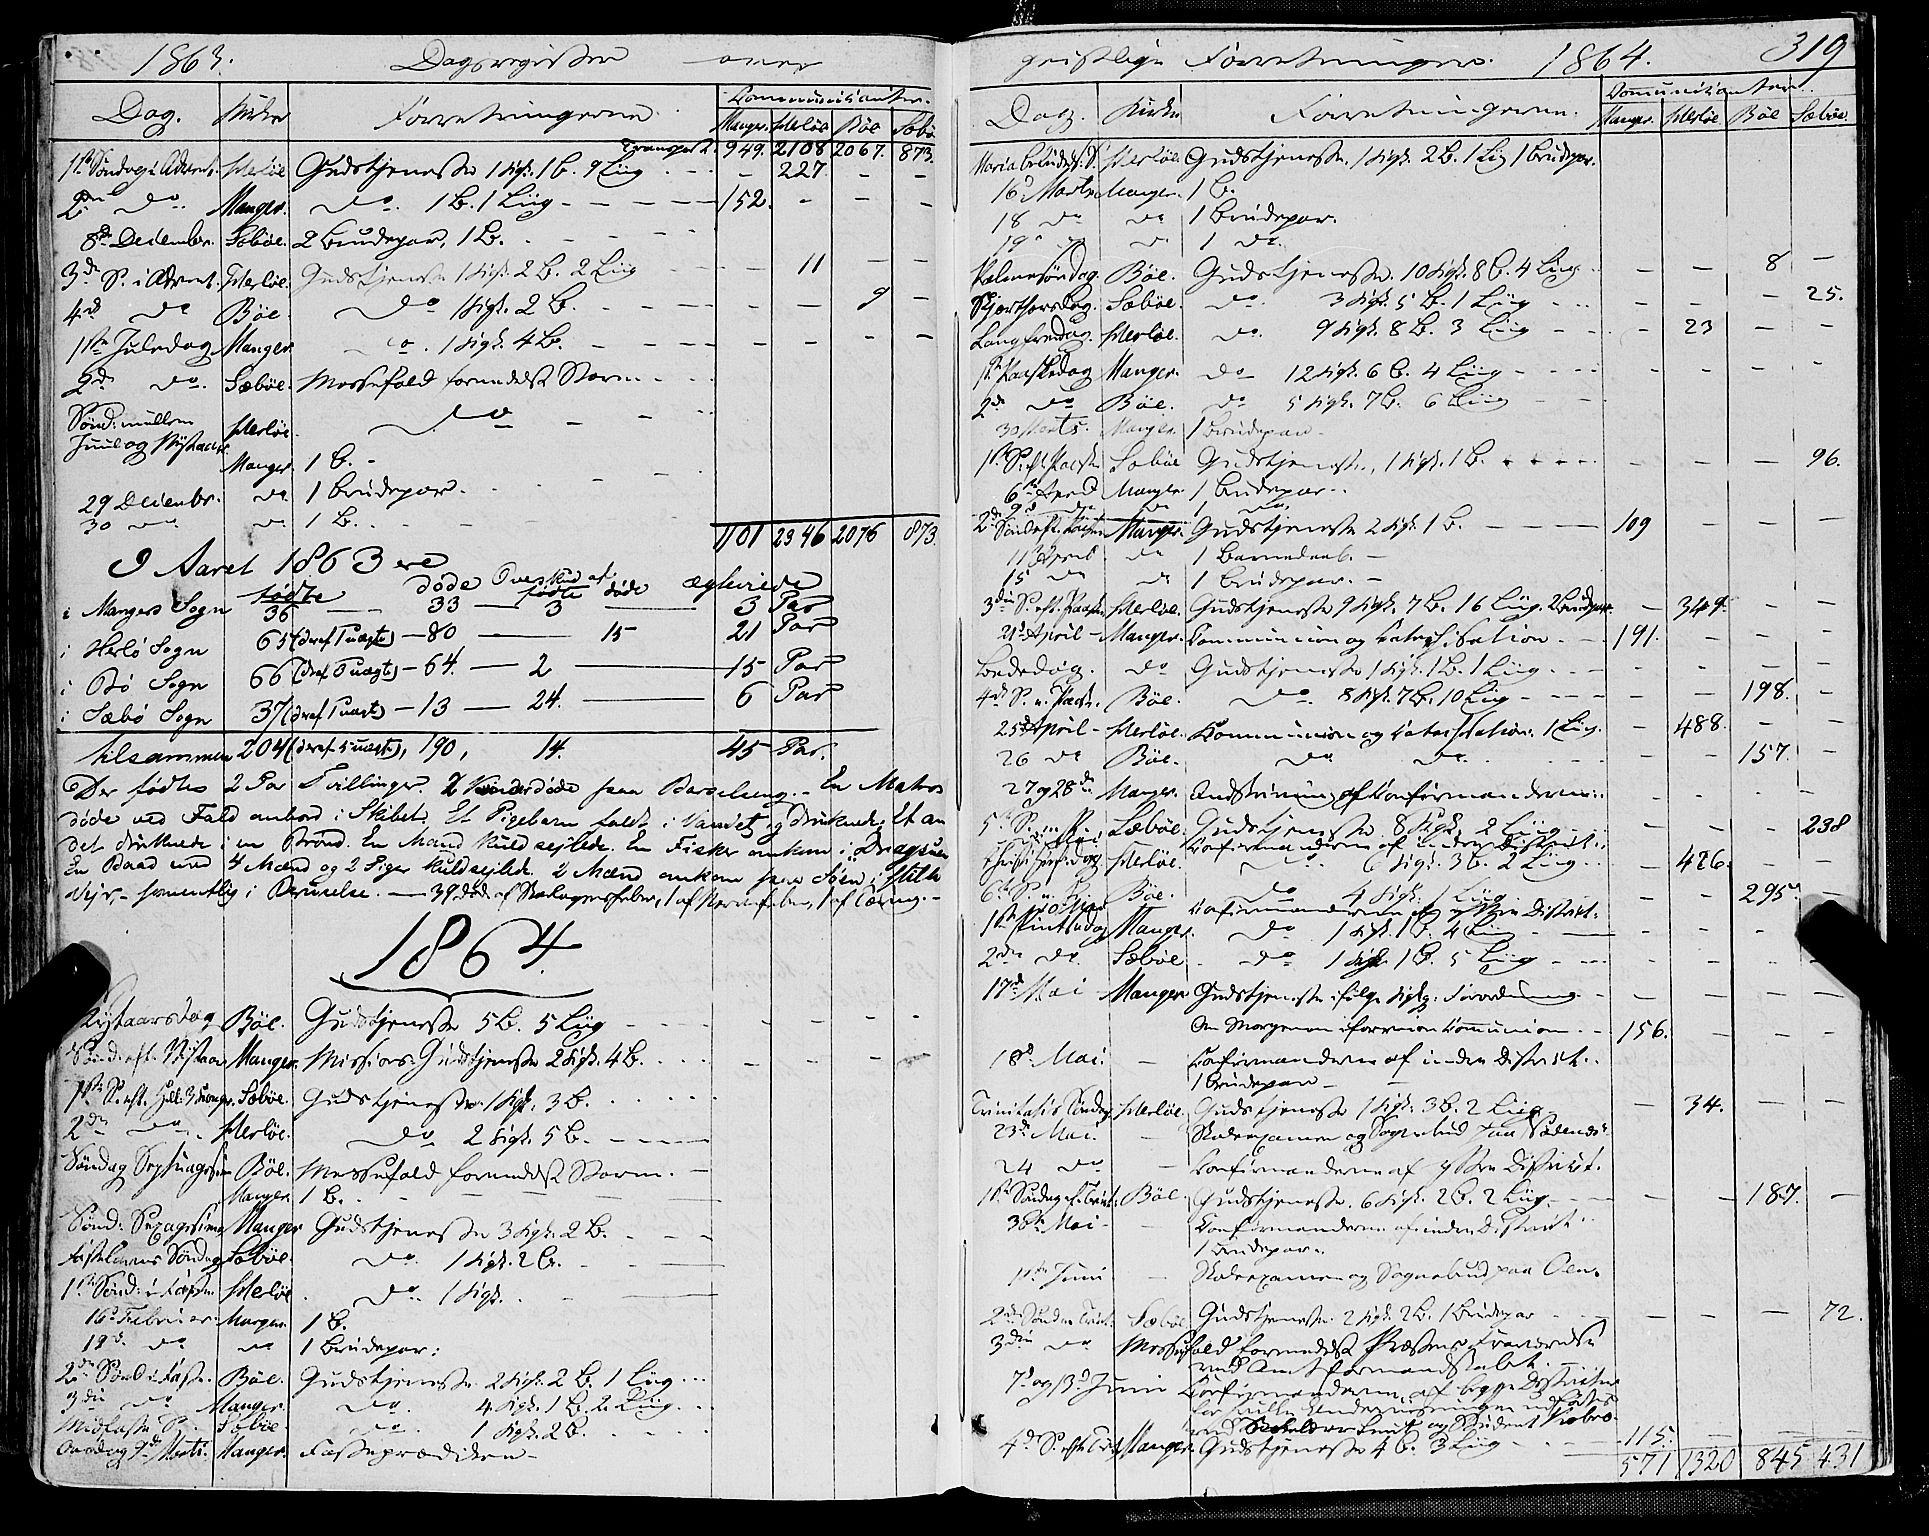 1863. Dagsregister over
Dag. Kirke Forretningerne. Communicanter.
Manger. Herløe Bøe Sæbøe
Transport. 949. 2108 2067. 873.
1ste Søndag i Advent. Herløe Gudstjeneste 1 Kigk. 1 B. 9 Liig - - - 227. - -
2den do. Manger. do. 1 B. 1 Liig - - - - 152. - - -
8de December. Sæbøe. 2 Brudepar, 1 B. - - - -
3die S. i Advent. Herløe. Gudstjeneste 1 Kigk. 2 B. 2 Liig - - - 11 - -
4de do Bøe. do 1 Kigk. 2 B. - - - - - 9 -
1ste Juledag Manger. do. 1 Kigk. 4 B. - - - - - - -
2den do. Sæbøe. Messefald formedelst Storm - - -
Sønd: mellem
Juul og Nytaar Herløe do - -
Manger. 1 B. -
29 December. do 1 Brudepar. - - -
30 do do 1 B. - -
1101 2346 2076 873.
I Aaret 1863 ere
fødte døde Overskud af fødte døde ægteviede
i Mangers Sogn 36 33 3 3 Par
i Herlø Sogn 65 (deraf 1 uægte) 80 15 21 Par
i Bø Sogn 66 (deraf uægte) 64. 2 15 Par
i Sæbø Sogn 37 (deraf 1 uægte) 13 24. 6 Par
tilsammen 204 (deraf 5 uægte), 190, 14. 45 Par.
Der fødtes 2 Par Tvillinger. 2 Kvinder døde paa Barselseng. - En Matros
døde ved Fald ombord i Skibet. Et Pigebarn faldt i Vandet og druknede. Et an
det druknede i en Brønd. En Mand kuldseilede. En Fisker omkom i
En Baad med 4 Mænd og 2 Piger kuldseilede. 2 Mænd omkom paa Søen i stille
Veir, - formentlig i Beruselse. - 39 døde af Skarlagensfeber, 1 af Nervefeber, 1 af Tæring. -
1864.
Nytaarsdag Bøe. Gudstjeneste 5 B. 5 Liig - - - - - - -
Sønd: eft. Nytaar Manger. Missions-Gudstjeneste 2 Kigk. 4 B. - - - - - - -
1ste S. eft. Hell. 3 Konger. Sæbøe. Gudstjeneste 1 Kigk. 3 B. - - - - -
2den do. Herløe. do 2 Kigk. 5 B. - - - -
Søndag Septuagesima Bøe. Messefald formedelst Storm. -
Manger. 1 B. - - - - -
Sønd: Sexagesima Manger Gudstjeneste 3 Kigk. 2 B. - - -
Fastelavns Søndag Sæbøe. do. 1 Kigk. 2 B. - -
1ste Sønd: i Fasten Herløe do. 1 Kigk. -
16de Februar Manger. 1 B.
18de do do 1 Brudepar.
2den Sønd i Fasten. Bøe. Gudstjeneste 2 Kigk. 2 B. 1 Liig - - -
3die do Manger. do. 4 Kigk. 1 B. 2 Liig. - - -
Midfaste S. Sæbøe do 1 Kigk. 2 B. - - - -
Onsdag 9de Marts. Manger. Fasteprædiken -
geistlige Forretninger. 1864. 319
Dag. Kirke Forretningerne. Communicanter.
Manger. Herløe. Bøe Sæbøe.
Maria Bebud: S. Herløe. Gudstjeneste. 1 Kigk. 2 B. 1 Liig 1 Brudepar.
16de Marts Manger. 1 B.
18 do do 1 Brudepar.
19 do 1 do.
Palmesøndag. Bøe. Gudstjeneste. 10 Kigk. 8 B. 4 Liig - - 8 -
Skjærthorsdag. Sæbøe. do. 3 Kigk. 5 B. 1 Liig - - - - - 25.
Langfredag. Herløe. do. 9 Kigk. 8 B. 3 Liig - - - 23 - -
1ste Paaskedag Manger. do 12 Kigk. 6 B. 4 Liig - - - - - - -
2den do Bøe. do 5 Kigk. 7 B. 6 Liig - -
30 Marts. Manger. 1 Brudepar -
1ste S. eft. Paaske Sæbøe Gudstjeneste, 1 Kigk. 1 B. - - - - - - - 96.
6te April Manger. 1 Brudepar.
9 do do 1 do
2den Sønd. eft. Paasken Manger. Gudstjeneste 2 Kigk. 1 B. - - - - 109 - - -
11te April do 1 Barnedaab. -
15 do do 1 Brudepar. -
3die S. eft. Paaske Herløe. Gudstjeneste 9 Kigk. 7 B. 16 Liig. 2 Brudepar. - 349. - -
21de April - Manger. Communion og Catechisation. - - 191. - - -
Bededag. do Gudstjeneste 1 Kigk. 1 B. 1 Liig. - - - - - -
4de S. e. Paaske. Bøe. do. 8 Kigk. 7 B. 10 Liig - - - - - 198. -
25de April - Herløe. Communion og Catechisation. 1 Liig. - 488. - -
26 do Bøe. do do. - - - 157. -
27 og 28de Manger. af Confirmanderne. - - - -
5te S. Sæbøe. Gudstjeneste 8 Kigk. 2 Liig - - - - 238
Confirmanderne af indre District.
Christi Himmelf. Dag Herløe. do. 6 Kigk. 3 B. 2 Liig. - - 426. - -
6te S. Bøe. do 4 Kigk. 1 Liig - - 295. -
Confirmanderne af ydre District.
1ste Pintsedag Manger. do 1 Kigk. 1 B. 4 Liig - - - - -
2den do. Sæbøe do 1 Kigk. 1 B. 5 Liig - - - - -
17de Mai - Manger Gudstjeneste ifølge Forordning - - - - -
Om Morgenen Communion. - 156. - - -
18de Mai. - Confirmanderne af indre District.
1 Brudepar -
Trinitatis Søndag Herløe. Gudstjeneste 1 Kigk. 3 B. 2 Liig - 34. - -
23de Mai. - Skoleexamen og Sognebud paa
24 do - Confirmanderne af ydre District.
1ste Søndag ef. Trinit: Bøe Gudstjeneste. 6 Kigk. 2 B. 2 Liig. - - - - - 187. -
30te Mai - Confirmanderne af indre District.
1 Brudepar.
1ste Juni - Skoleexamen og Sognebud paa Øen.
2den Sønd. e. Trinit. Sæbøe Gudstjeneste. 2 Kigk. 2 B. 1 Brudepar - - - - 72.
3die do Messefald formedelst Præstens Fraværelse
ved Amtsformandskabet.
7de og 13de Juni Confirmanderne af begge Districter
og Student
4de S. eft. Trin. Manger Gudstjeneste 4 B. 3 Liig - - 115. - - -
571 1320 845 431